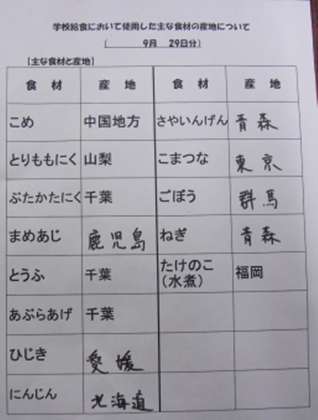 学校給食において使用した主な食材の産地について
( 9月 29日分)
【主な食材と産地】
食 材 産 地 食 材 産 地
こめ 中国地方 さやいんげん 青森
とりももにく 山梨 こまつな 東京
ぶたかたにく 千葉 ごぼう 群馬
まめあじ 鹿児島 ねぎ 青森
とうふ 千葉 たけのこ(水煮) 福岡
あぶらあげ 千葉
ひじき 愛媛
にんじん 北海道